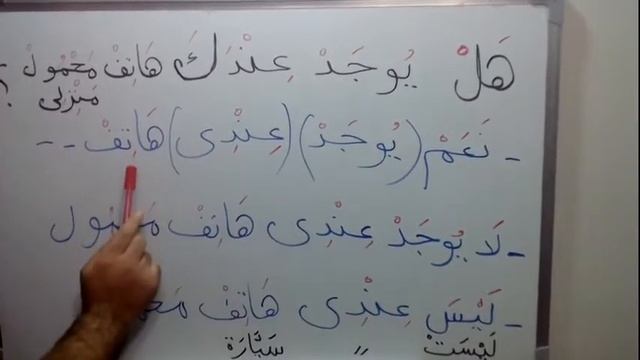 هَلْ يُوجَدْ عِنْدَكَ هَاتِفْ مَحْمُولْ ؟
مَنْزِلى
- نَعَمْ (يُوجَدْ) (عِنْدِى) هَاتِفْ --
- لَا يُوجَدْ عِنْدِى هَاتِفْ
- لَيْسَ عِنْدِى هَاتِفْ
لَيْسَتْ " سَيَّارَة